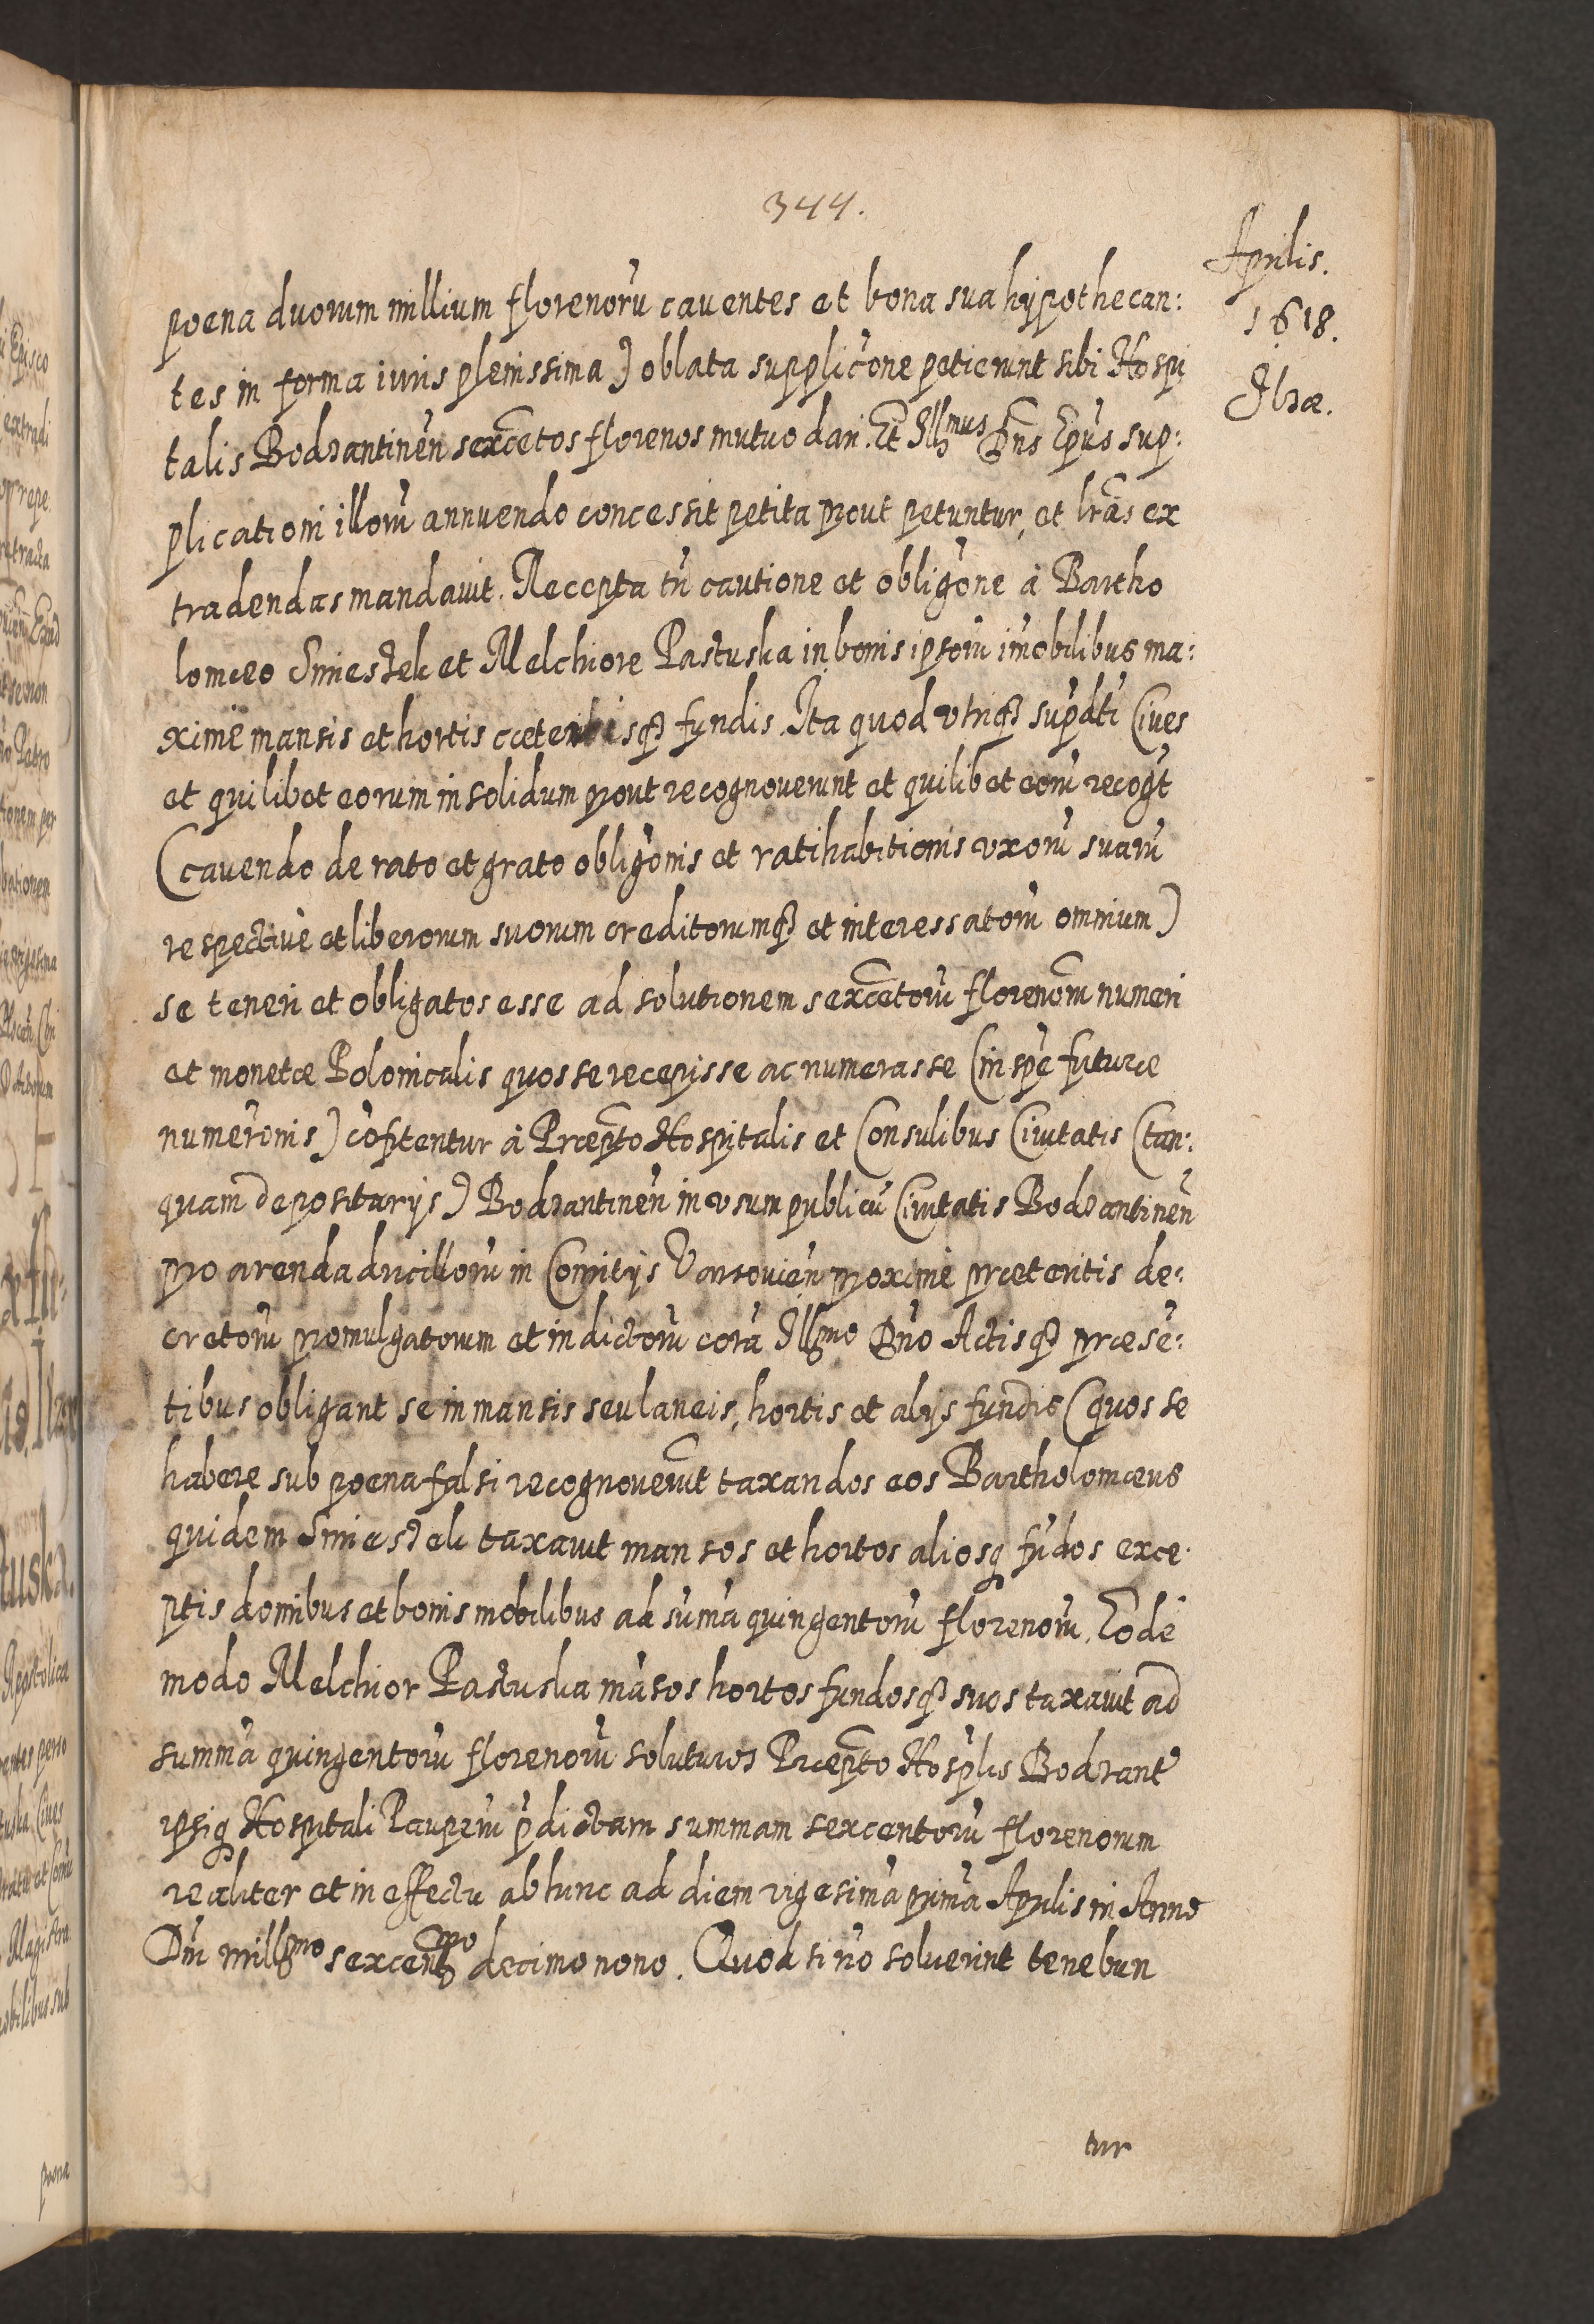 344.
Aprilis.
1618.
Ilzæ.
poena duorum millium florenorũ caventes et bona sua hypothecan:
tes in forma iuris plenissima) oblata supplicõne petierunt sibi Hospi
talis Bodzantineñ sexcẽtos florenos mutuo dari. Et Illmus Dñs Epũs sup:
plicationi illorũ annuendo concessit petita prout petuntur, et lrãs ex
tradendas mandavit. Recepta tñ cautione et obligõne à Bartho
lomæo Smiestek et Melchiore Pastuska in bonis ipsorũ imobilibus ma:
ximè mansis et hortis cæterisq3 fundis. Ita quod utriq3 supadti Cives
et quilibet eorum in solidum prout recognoverunt et quilibet eorũ recogt
(cavendo de rato et grato obligõnis et ratihabitionis uxorũ suarũ
respectivè et liberorum suorum creditorumq3 et interessatorũ omnium)
se teneri et obligatos esse ad solutionem sexcẽtorũ florenorũ numeri
et monetæ Polonicalis quos se recepisse ac numerasse (in spẽ futuræ
numerõnis) cõfitentur à Præpto Hospitalis et Consulibus Civitatis (tan:
quam depositarijs) Bodzantineñ in usum publicũ Civitatis Bodzantineñ
pro arenda ducillorũ in Comitijs Varsovieñ proximè præteritis de:
cretorũ promulgatorum et indictorũ corã Illmo Dño Actisq3 præsẽ:
tibus obligant se in mansis seu laneis, hortis et alijs fundis (quos se
habere sub poena falsi recognoverũt taxandos eos Bartholomæus
quidem Smiestek taxavit mansos et hortos aliosq fũdos exce:
ptis domibus et bonis mobilibus ad sumã quingentorũ florenorũ. Eodẽ
modo Melchior Pastuska mãsos hortos fundosq3 suos taxavit ad
summã quingentorũ florenorũ soluturos Præpto Hosplis Bodzant
ipsiq Hospitali Pauperũ p̃dictam summam sexcentorũ florenorum
realiter et in effectu ab hinc ad diem vigesimã primã Aprilis in Anno
Dni millmo sexcentmo decimo nono. Quod si nõ solverint tenebun
tur